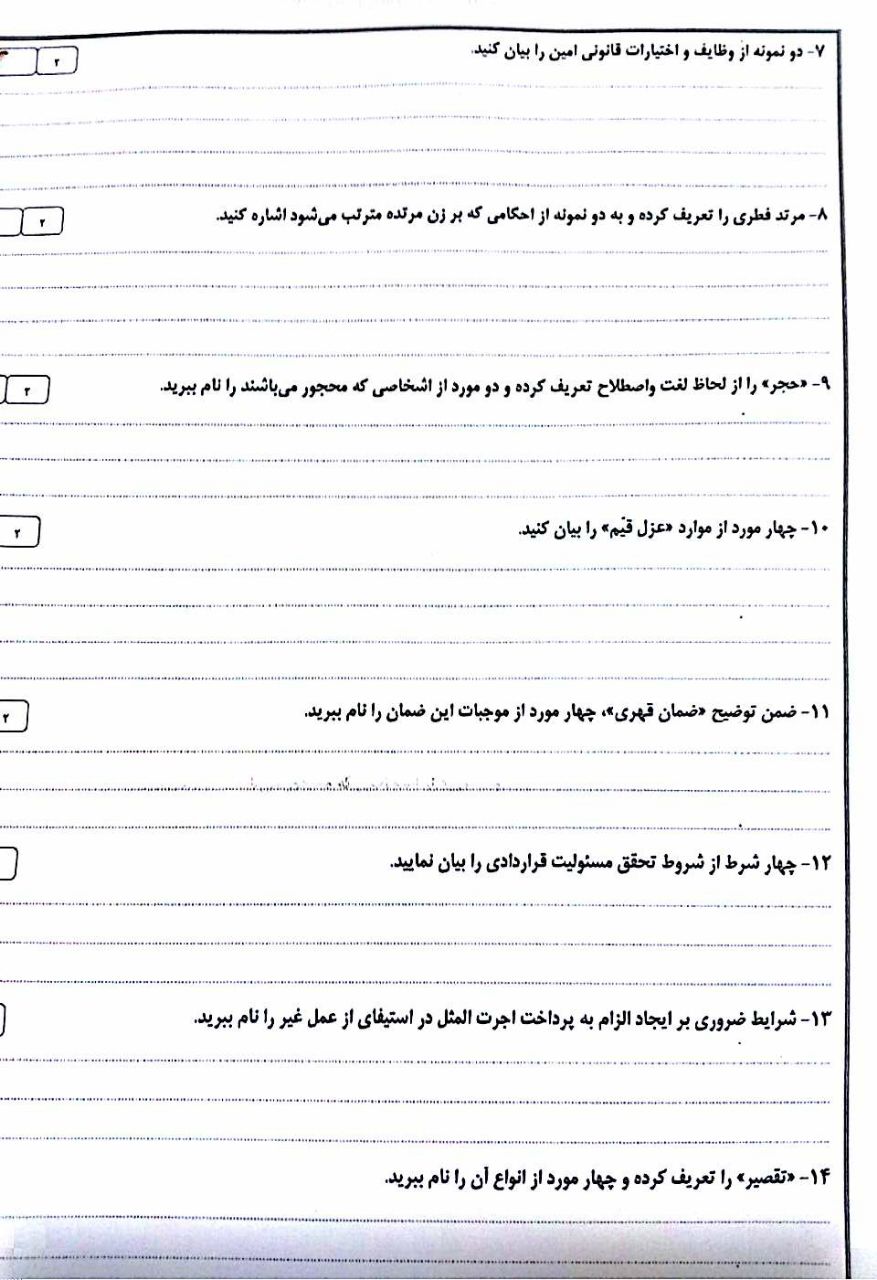 ۷- دو نمونه از وظایف و اختیارات قانونی امین را بیان کنید.
۲
۸- مرتد فطری را تعریف کرده و به دو نمونه از احکامی که بر زن مرتده مترتب می‌شود اشاره کنید.
۲
۹- «حجر» را از لحاظ لغت واصطلاح تعریف کرده و دو مورد از اشخاصی که محجور می‌باشند را نام ببرید.
۲
۱۰- چهار مورد از موارد «عزل قیّم» را بیان کنید.
۲
۱۱- ضمن توضیح «ضمان قهری»، چهار مورد از موجبات این ضمان را نام ببرید.
۲
۱۲- چهار شرط از شروط تحقق مسئولیت قراردادی را بیان نمایید.
۱۳- شرایط ضروری بر ایجاد الزام به پرداخت اجرت المثل در استیفای از عمل غیر را نام ببرید.
۱۴- «تقصیر» را تعریف کرده و چهار مورد از انواع آن را نام ببرید.